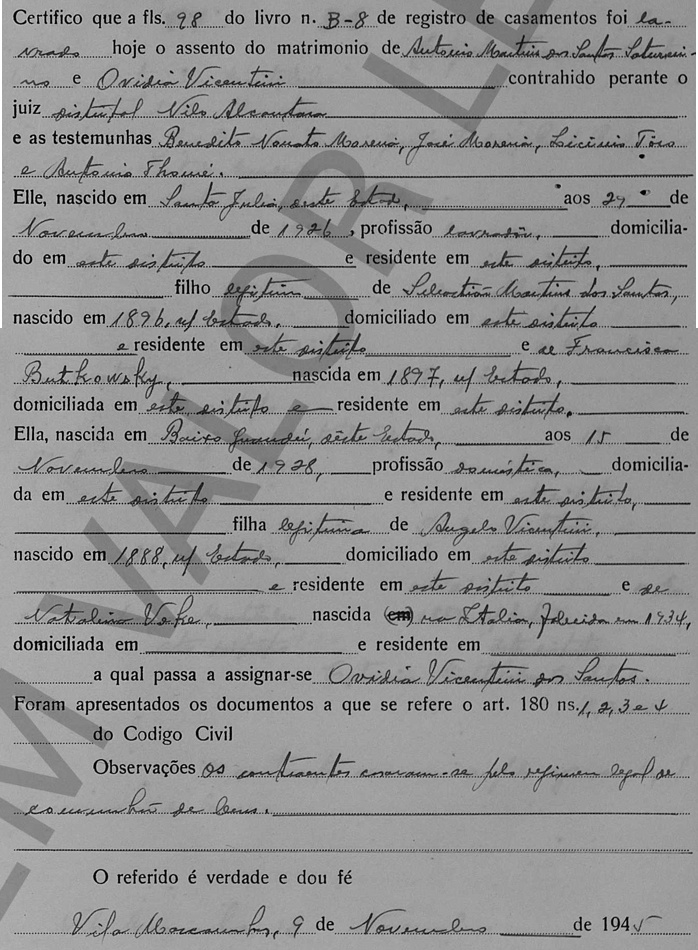 Certifico que a fls. 98 do livro n. B-8 de registro de casamentos foi la-
vrado hoje o assento do matrimonio de Antonio Martins dos Santos Saturni-
no e Ovidia Vicentini contrahido perante o
juiz distrital Nilo Alcantara
e as testemunhas Benedito Nonato Moreira, José Moreira, Licinio
e Antonio Thomé.
Elle, nascido em Santa Julia, deste Estado, aos 27 de
Novembro de 1926, profissão lavrador, domicilia-
do em este distrito e residente em este distrito,
filho legitimo de Sebastião Martins dos Santos,
nascido em 1896, n/ Estado, domiciliado em este distrito
e residente em este distrito e de Francisca
Butkowsky, nascida em 1897, n/ Estado,
domiciliada em este distrito e residente em este distrito.
Ella, nascida em Baixo Guandú, dêste Estado, aos 15 de
Novembro de 1928, profissão doméstica, domicilia-
da em este distrito e residente em este distrito,
filha legitima de Angelo Vicentini,
nascido em 1888, n/ Estado, domiciliado em este distrito
e residente em este distrito e de
Natalina nascida (em) na Italia, falecida em 1934,
domiciliada em e residente em
a qual passa a assignar-se Ovidia Vicentini dos Santos.
Foram apresentados os documentos a que se refere o art. 180 ns. 1, 2, 3 e 4
do Codigo Civil
Observações os contraentes casaram-se pelo regimem legal de
comunhão de bens.
O referido é verdade e dou fé
Vila 9 de Novembro de 1945
EM VALOR LE